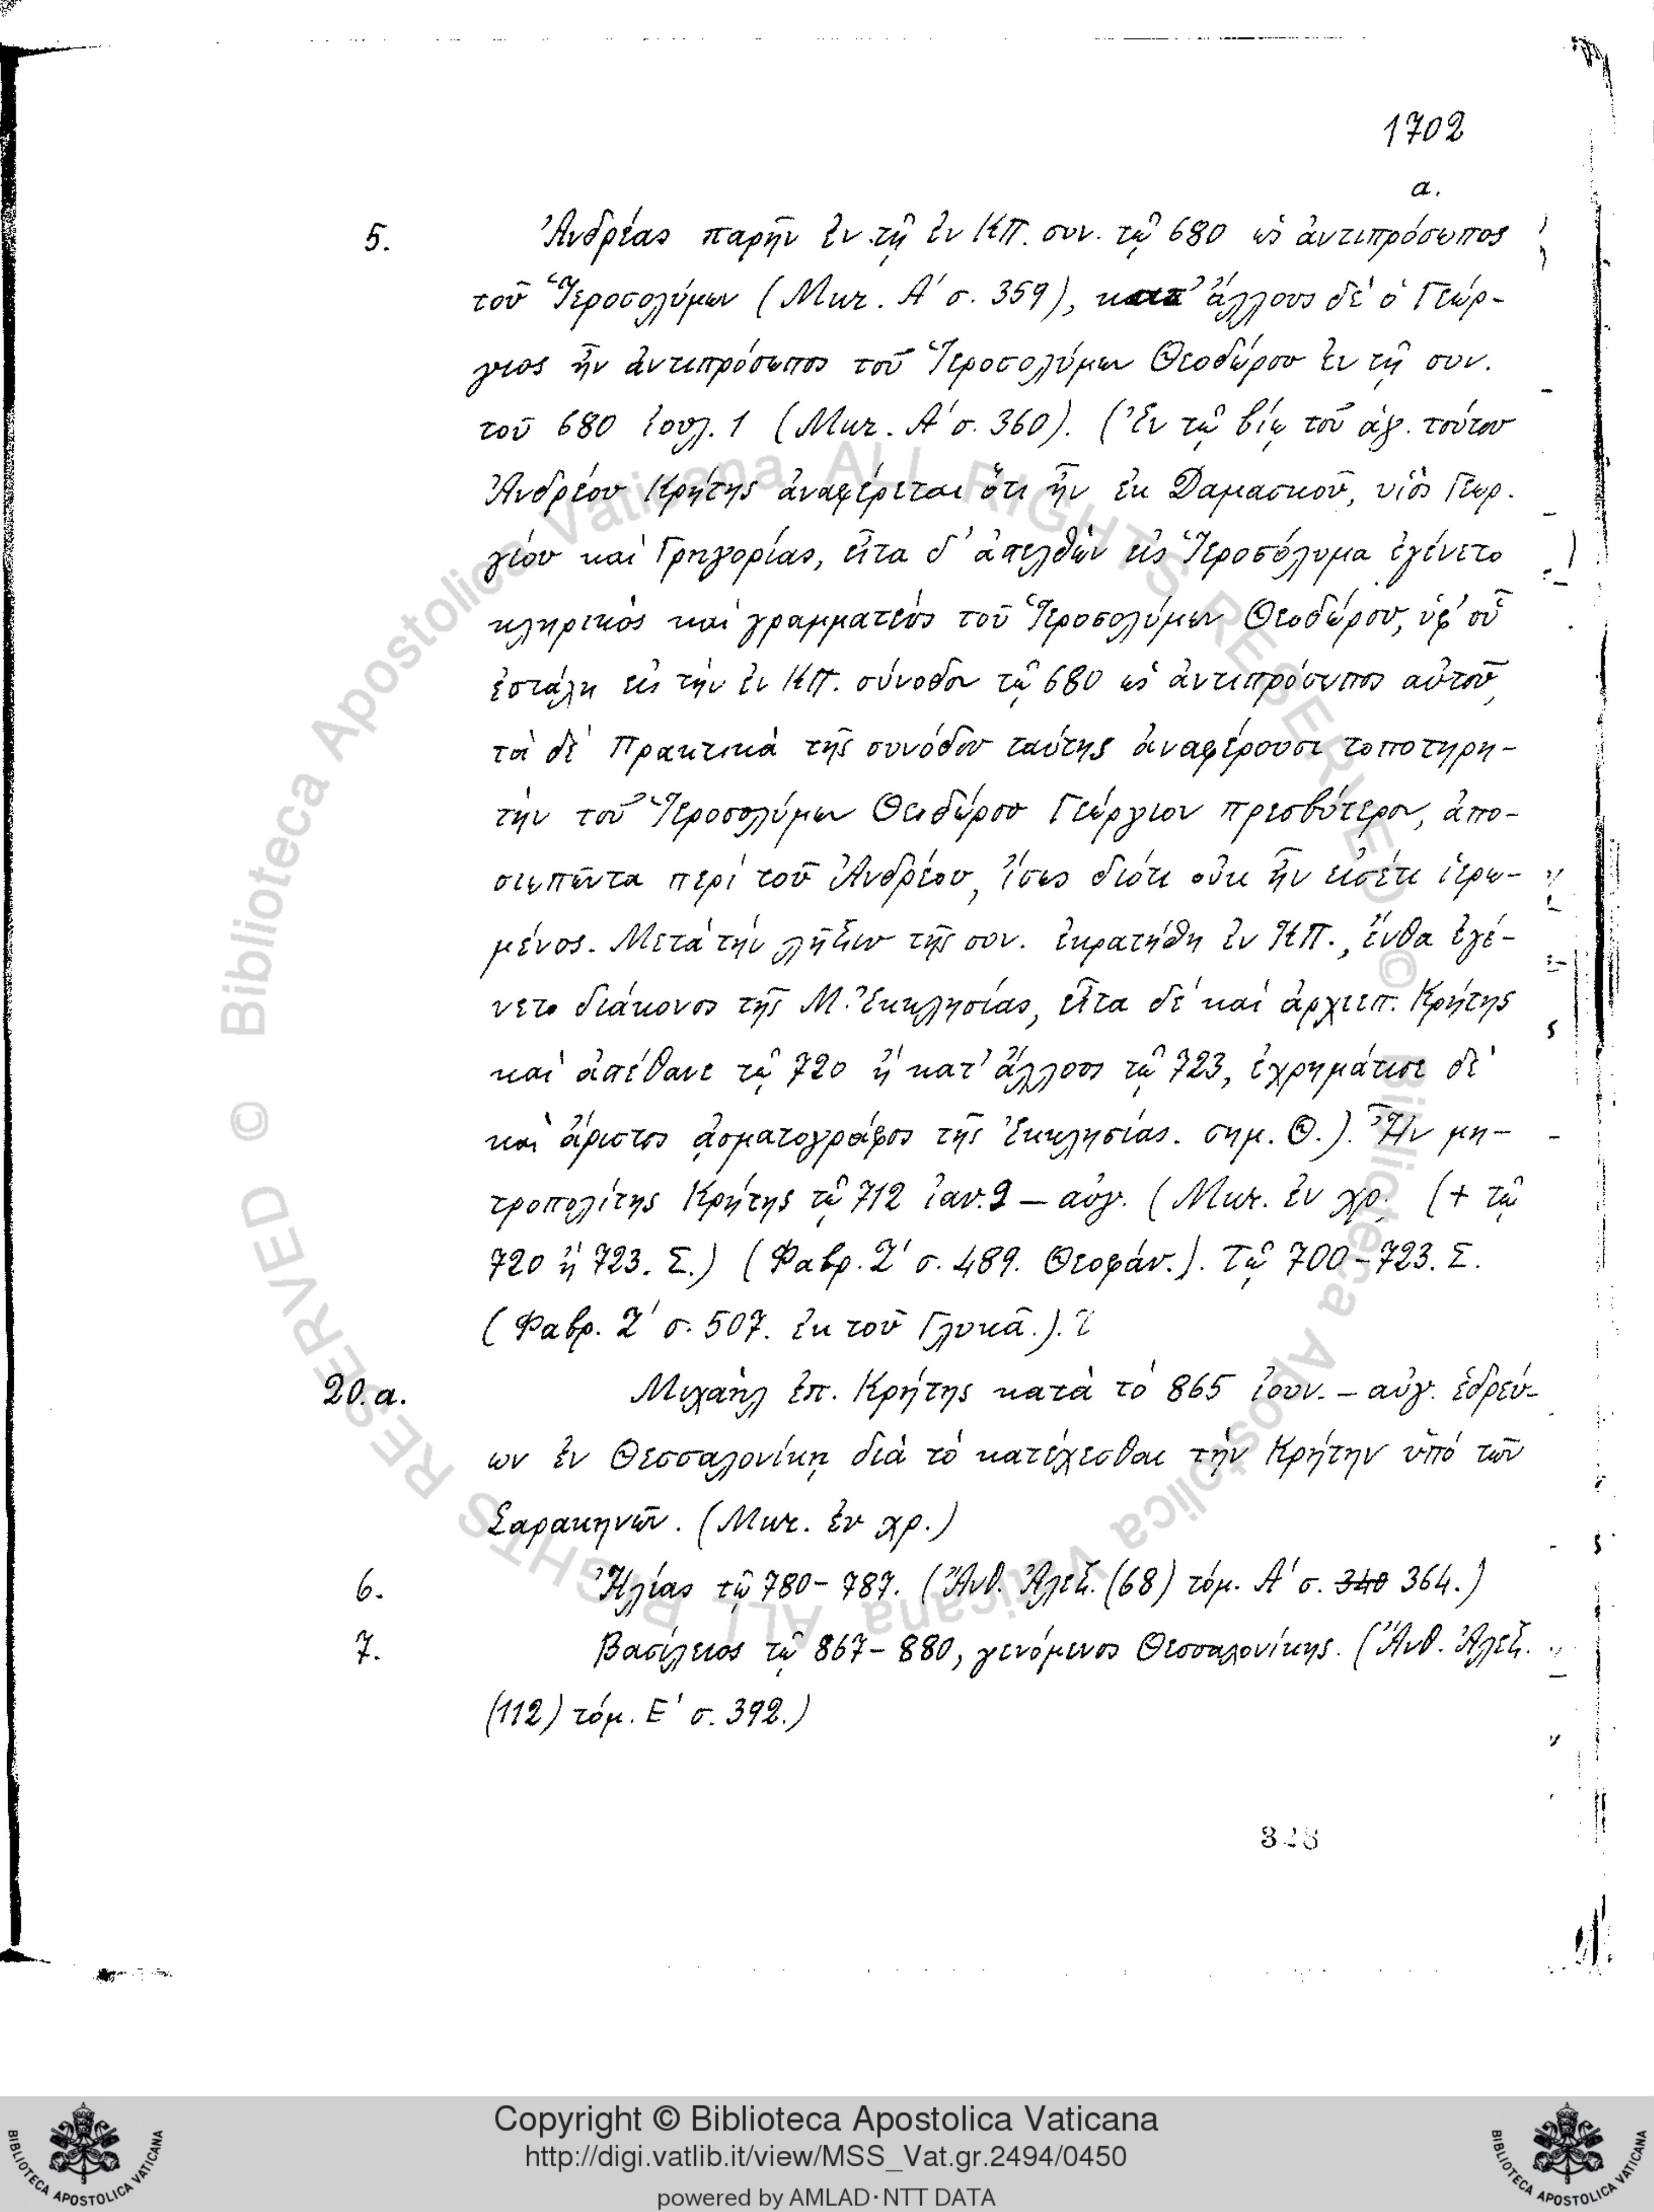 1702
α.
5. Ἀνδρέας παρῆν ἐν τῇ ἐν ΚΠ. συν. τῷ 680 ὡς ἀντιπρόσωπος
τοῦ Ἱεροσολύμων (Μικ. Α΄ σ. 359), κατ' ἄλλους δὲ ὁ Γεώρ-
γιος ἦν ἀντιπρόσωπος τοῦ Ἱεροσολύμων Θεοδώρου ἐν τῇ συν.
τοῦ 680 ἰουλ. 1 (Μικ. Α΄ σ. 360). (Ἐν τῷ βίῳ τοῦ ἁγ. τούτου
Ἀνδρέου Κρήτης ἀναφέρεται ὅτι ἦν ἐκ Δαμασκοῦ, υἱὸς Γεωρ.
γίου καὶ Γρηγορίας, εἶτα δ' ἀπελθὼν εἰς Ἱεροσόλυμα ἐγένετο
κληρικὸς καὶ γραμματεὺς τοῦ Ἱεροσολύμων Θεοδώρου, ὑφ' οὗ
ἐστάλη εἰς τὴν ἐν ΚΠ. σύνοδον τῷ 680 ὡς ἀντιπρόσωπος αὐτοῦ,
τὰ δὲ Πρακτικὰ τῆς συνόδου ταύτης ἀναφέρουσι τοποτηρη-
τὴν τοῦ Ἱεροσολύμων Θεοδώρου Γεώργιον πρεσβύτερον, ἀπο-
σιωπῶντα περὶ τοῦ Ἀνδρέου, ἴσως διότι οὐκ ἦν εἰσέτι ἱερω-
μένος. Μετὰ τὴν λῆξιν τῆς συν. ἐκρατήθη ἐν ΚΠ., ἔνθα ἐγέ-
νετο διάκονος τῆς Μ. Ἐκκλησίας, εἶτα δὲ καὶ ἀρχιεπ. Κρήτης
καὶ ἀπέθανε τῷ 720 ἢ κατ' ἄλλους τῷ 723, ἐχρημάτισε δὲ
καὶ ἄριστος ᾀσματογράφος τῆς Ἐκκλησίας. σημ. Θ.). Ἦν μη-
τροπολίτης Κρήτης τῷ 712 ἰαν. 9 – αὐγ. (Μικ. ἐν χρ. (+ τῷ
720 ἢ 723. Σ.) (Φαβρ. Ζ΄ σ. 489. Θεοφάν.). Τῷ 700–723. Σ.
(Φαβρ. Ζ΄ σ. 507. ἐκ τοῦ Γλυκᾶ.).
20.α. Μιχαὴλ ἐπ. Κρήτης κατὰ τὸ 865 ἰουν. – αὐγ. ἑδρεύ-
ων ἐν Θεσσαλονίκῃ διὰ τὸ κατέχεσθαι τὴν Κρήτην ὑπὸ τῶν
Σαρακηνῶν. (Μικ. ἐν χρ.)
6. Ἠλίας τῷ 780–787. (Ἄνθ. Ἀλεξ. (68) τόμ. Α΄ σ. 340 364.)
7. Βασίλειος τῷ 867–880, γενόμενος Θεσσαλονίκης. (Ἄνθ. Ἀλεξ.
(112) τόμ. Ε΄ σ. 392.)
328
© Biblioteca Apostolica Vaticana ALL RIGHTS RESERVED © Biblioteca Apostolica Vaticana ALL RIGHTS RESERVED
BIBLIOTECA APOSTOLICA VATICANA
Copyright © Biblioteca Apostolica Vaticana
http://digi.vatlib.it/view/MSS_Vat.gr.2494/0450
powered by AMLAD·NTT DATA
BIBLIOTECA APOSTOLICA VATICANA